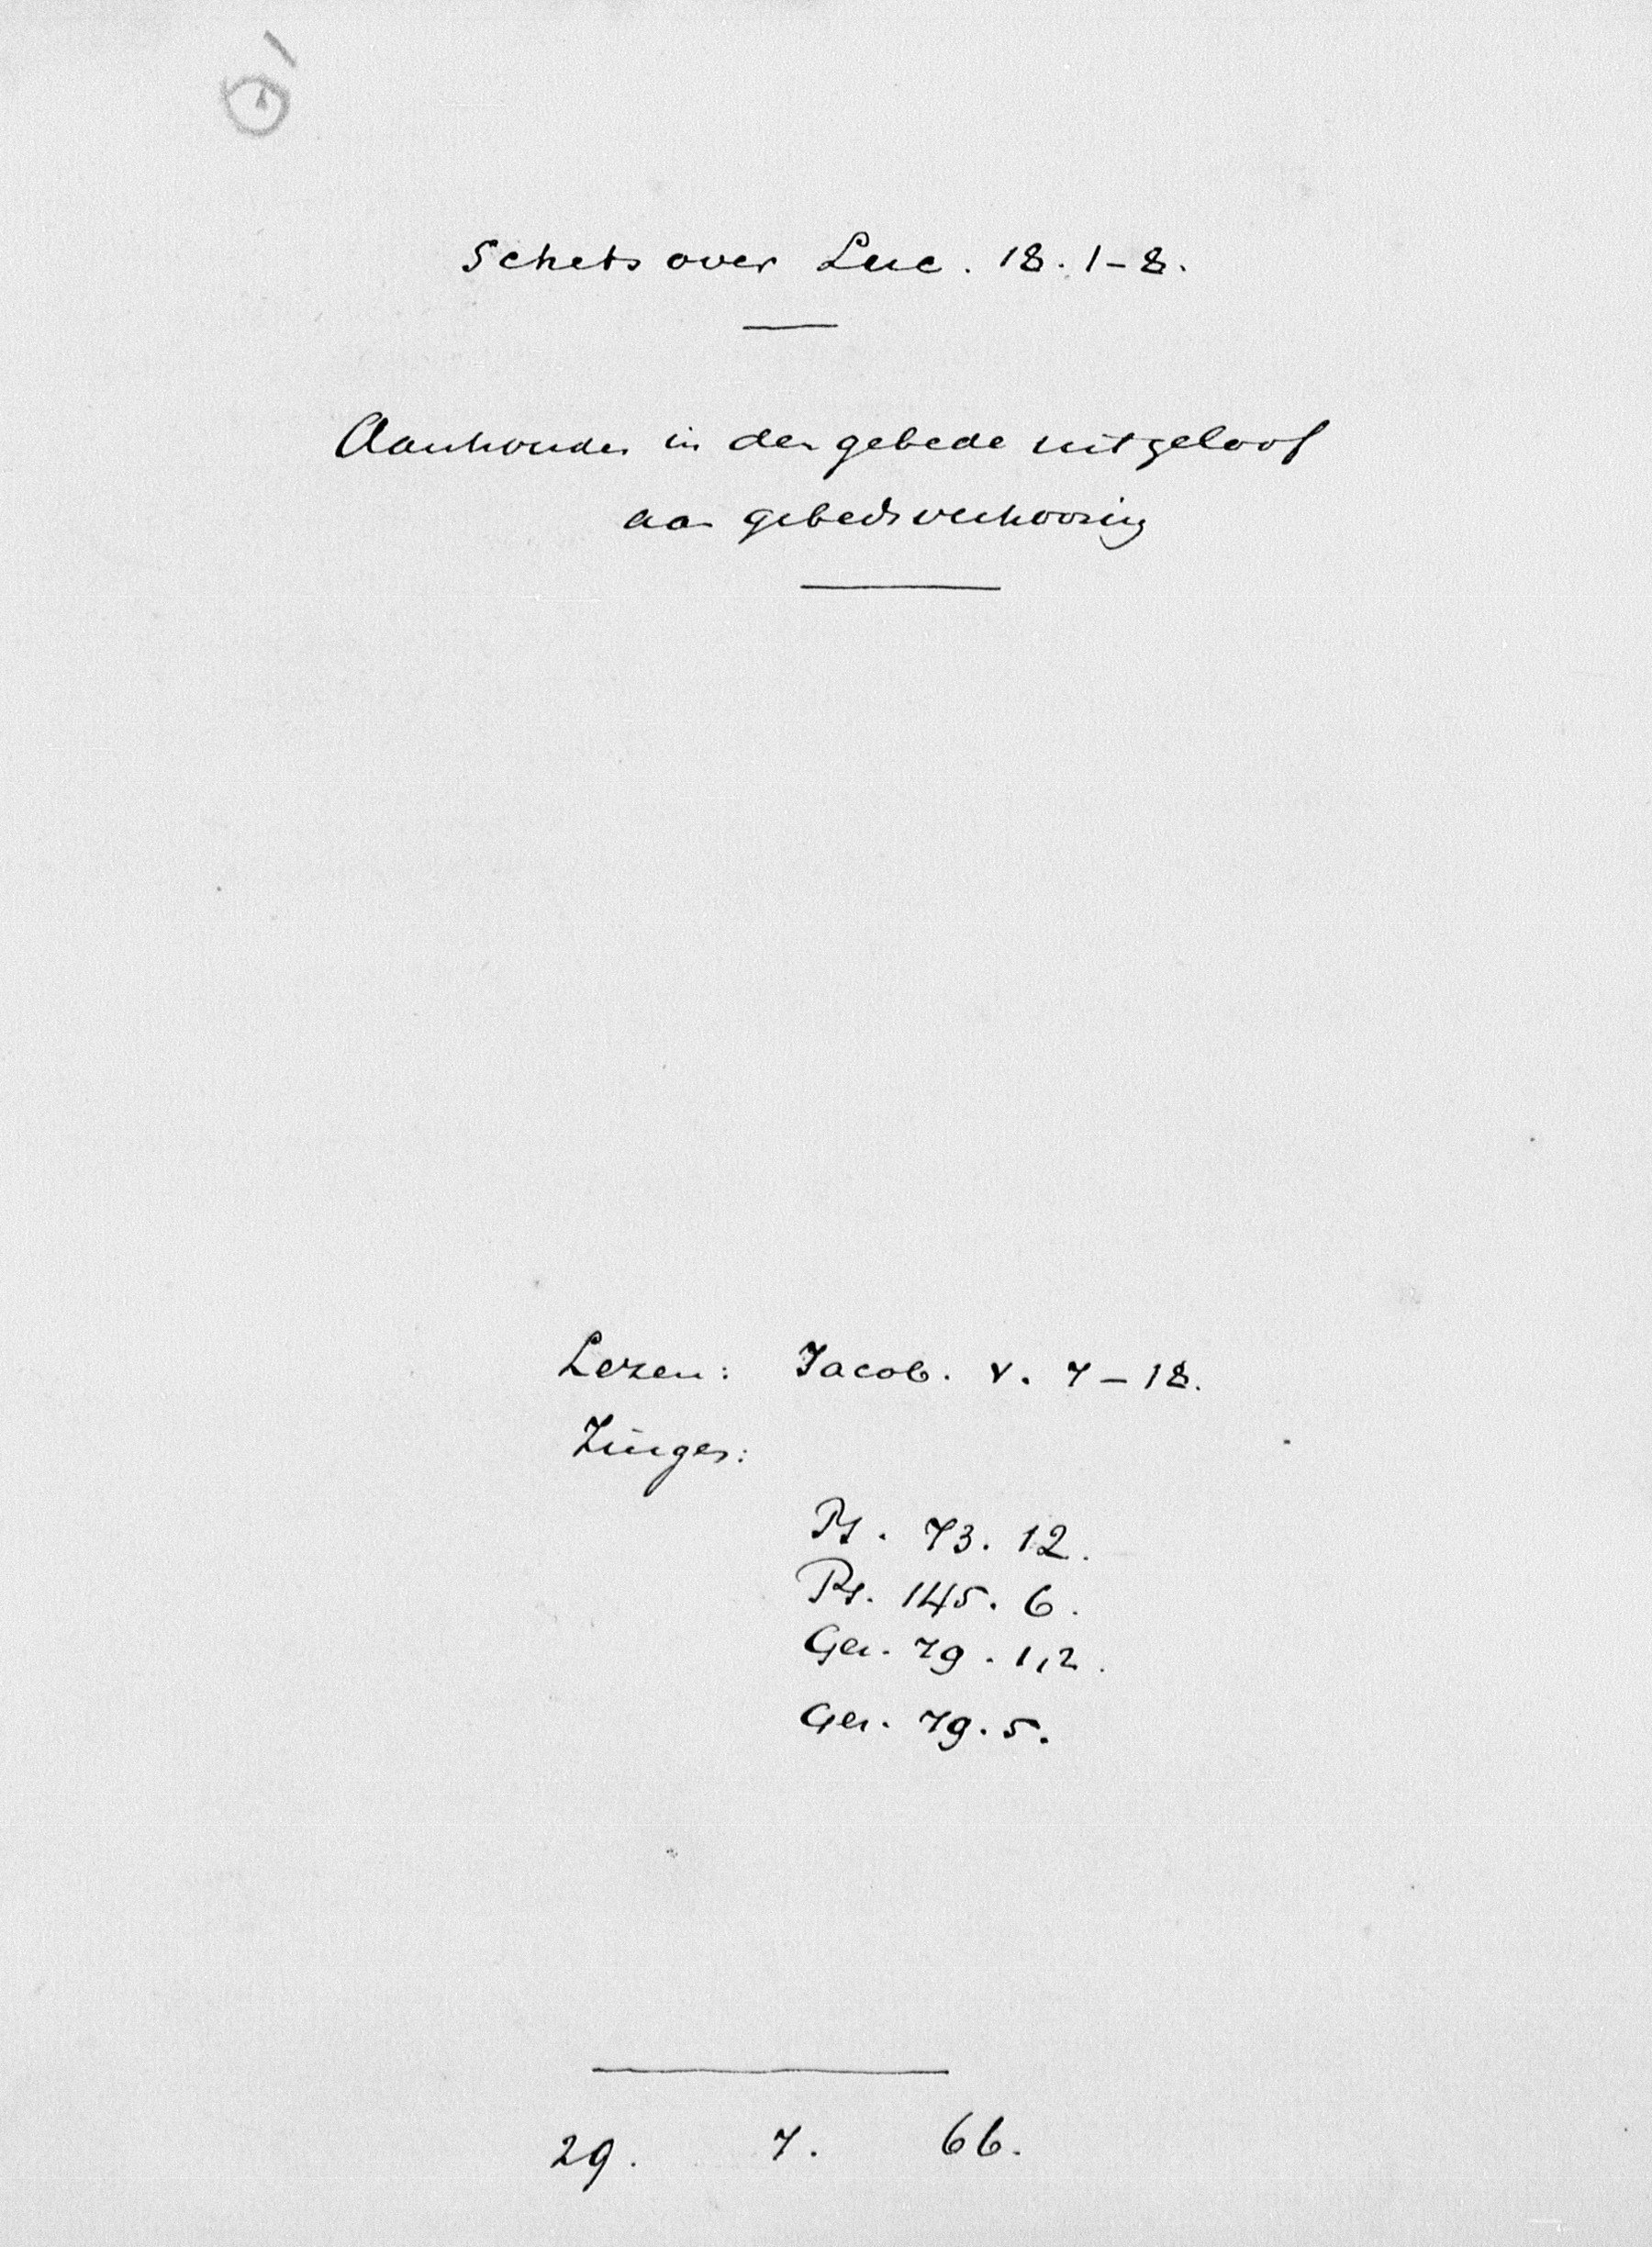 Schets over Luc. 18. 1-8.
Aanhouden in den gebede uit geloof
aan gebedsverhooring
Lezen: Jacob. V. 7-18.
Zingen:
Ps. 73. 12.
Ps. 145. 6.
Gez. 79. 1,2.
Gez. 79. 5.
29. 7. 66.